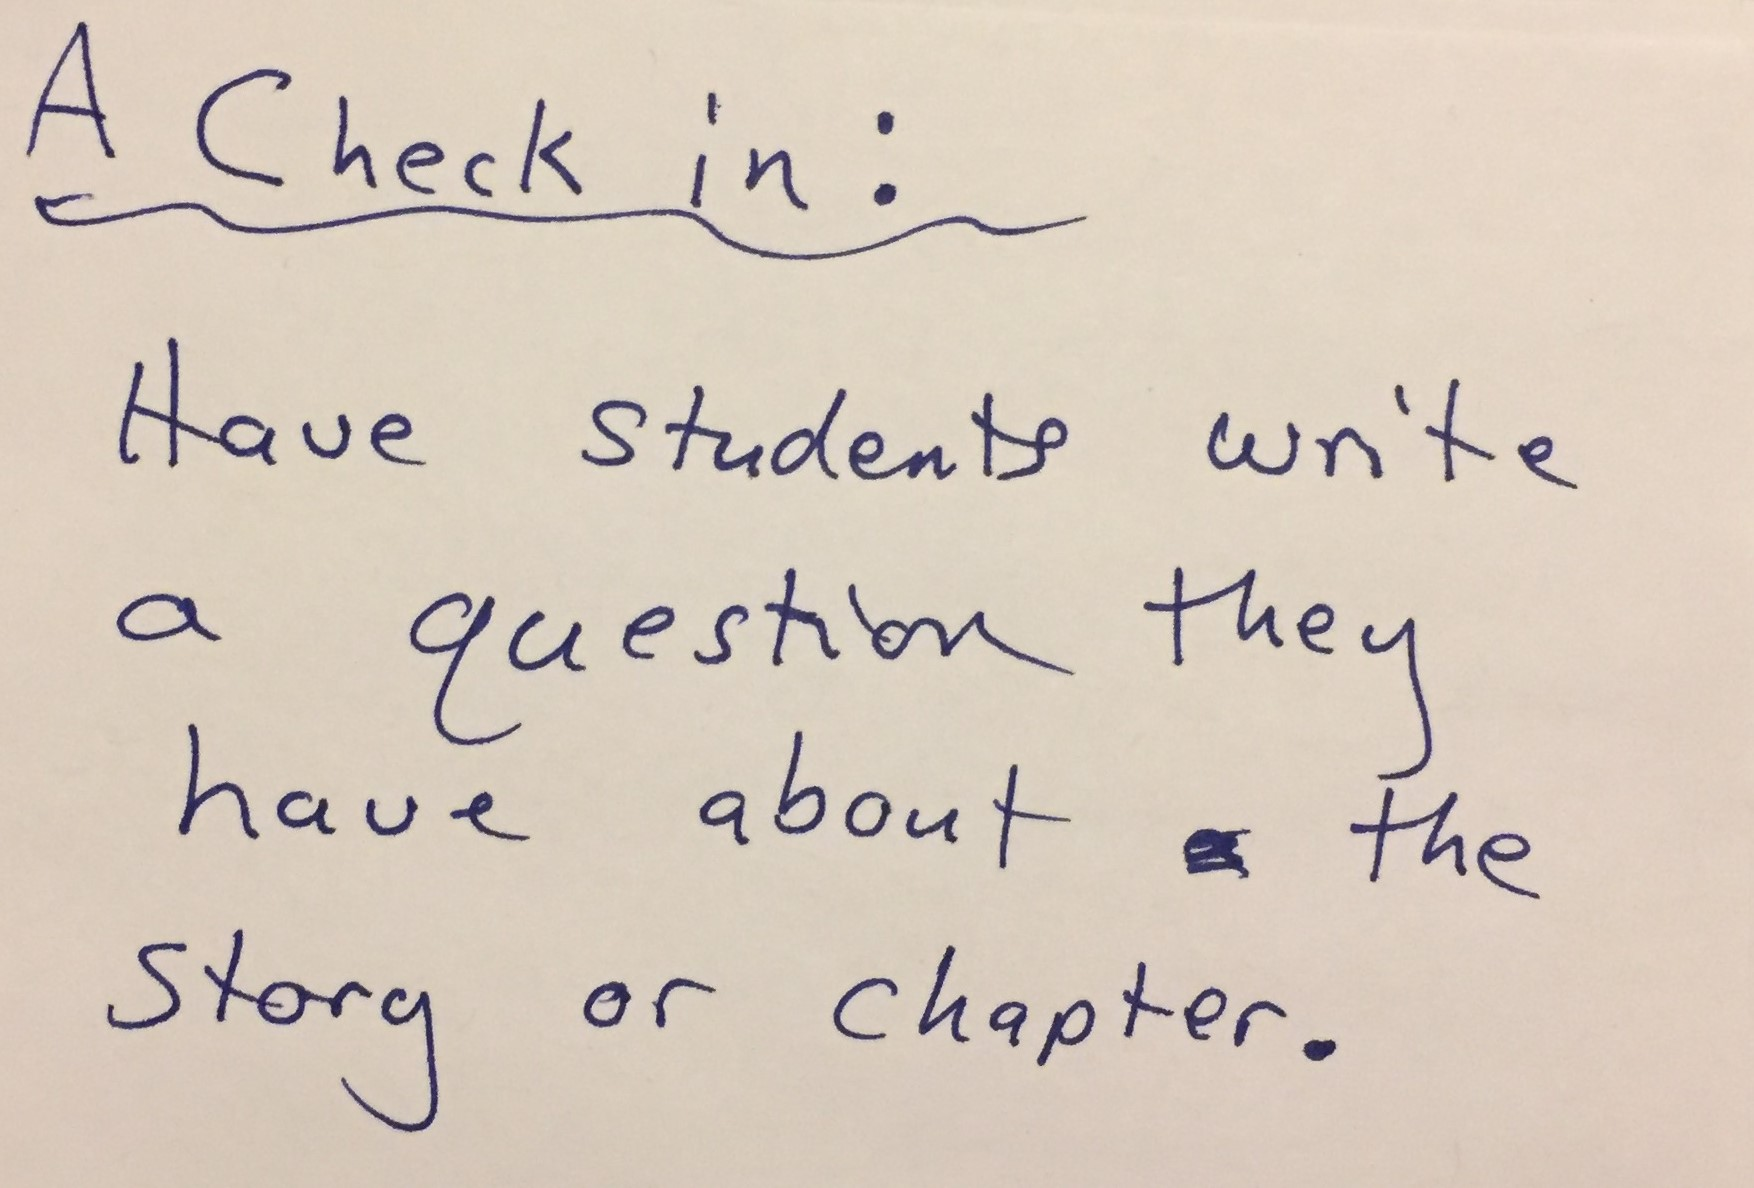 A Check in:
Have students write
a question they
have about the
Story or chapter.